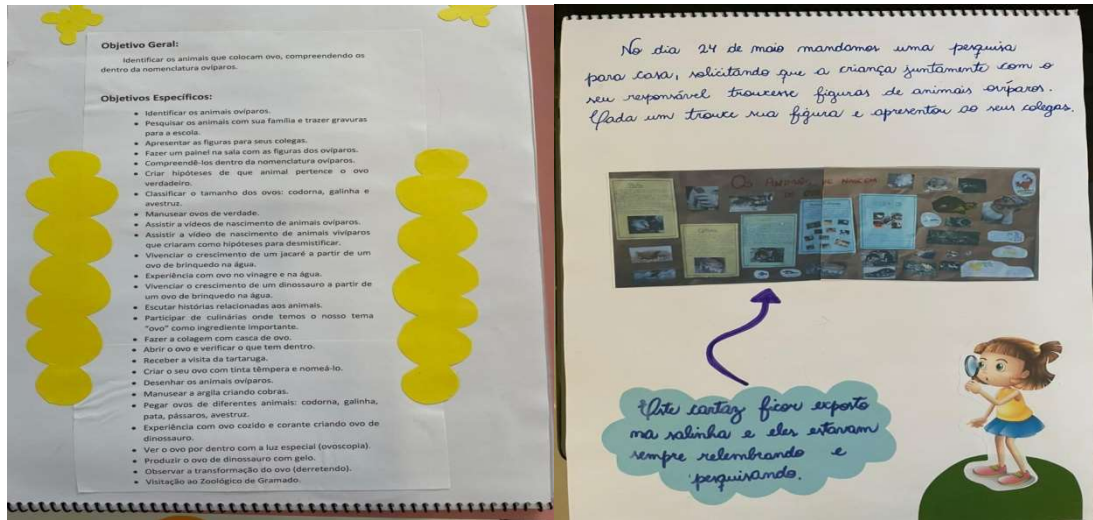 Objetivo Geral:
Identificar os animais que colocam ovo, compreendendo os
dentro da nomenclatura ovíparos.
Objetivos Específicos:
• Identificar os animais ovíparos.
• Pesquisar os animais com sua família e trazer gravuras
para a escola.
• Apresentar as figuras para seus colegas.
• Fazer um painel na sala com as figuras dos ovíparos.
• Compreendê-los dentro da nomenclatura ovíparos.
• Criar hipóteses de que animal pertence o ovo
verdadeiro.
• Classificar o tamanho dos ovos: codorna, galinha e
avestruz.
• Manusear ovos de verdade.
• Assistir a vídeos de nascimento de animais ovíparos.
• Assistir a vídeo de nascimento de animais vivíparos
que criaram como hipóteses para desmistificar.
• Vivenciar o crescimento de um jacaré a partir de um
ovo de brinquedo na água.
• Experiência com ovo no vinagre e na água.
• Vivenciar o crescimento de um dinossauro a partir de
um ovo de brinquedo na água.
• Escutar histórias relacionadas aos animais.
• Participar de culinárias onde temos o nosso tema
"ovo" como ingrediente importante.
• Fazer a colagem com casca de ovo.
• Abrir o ovo e verificar o que tem dentro.
• Receber a visita da tartaruga.
• Criar o seu ovo com tinta têmpera e nomeá-lo.
• Desenhar os animais ovíparos.
• Manusear a argila criando cobras.
• Pegar ovos de diferentes animais: codorna, galinha,
pata, pássaros, avestruz.
• Experiência com ovo cozido e corante criando ovo de
dinossauro.
• Ver o ovo por dentro com a luz especial (ovoscopia).
• Produzir o ovo de dinossauro com gelo.
• Observar a transformação do ovo (derretendo).
• Visitação ao Zoológico de Gramado.
No dia 24 de maio mandamos uma pesquisa
para casa, solicitando que a criança juntamente com o
seu responsável trouxesse figuras de animais ovíparos.
Cada um trouxe sua figura e apresentou ao seus colegas.
Os que nascem
Este cartaz ficou exposto
na salinha e eles estavam
sempre relembrando e
pesquisando.